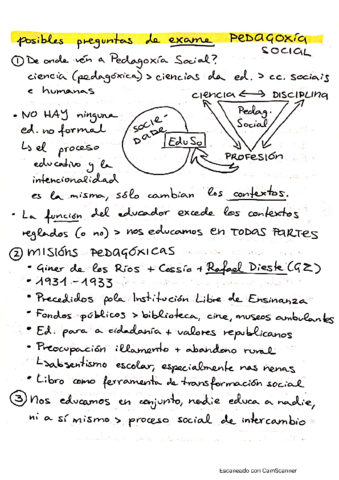 posibles preguntas de exame PEDAGOXÍA
SOCIAL
① De onde vén a Pedagoxía Social?
ciencia (pedagóxica) > ciencias da ed. > cc. sociais
e humanas
CIENCIA ⟷ DISCIPLINA
Pedag.
Social
PROFESIÓN
SOCIE-
DADE
EduSo
• NO HAY ninguna
ed. no formal
↳ el proceso
educativo y la
intencionalidad
es la misma, sólo cambian los contextos.
• La función del educador excede los contextos
reglados (o no) > nos educamos en TODAS PARTES
② MISIÓNS PEDAGÓXICAS
• Giner de los Ríos + Cossío + Rafael Dieste (GZ)
• 1931-1933
• Precedidos pola Institución Libre de Ensinanza
• Fondos públicos > biblioteca, cine, museos ambulantes
• Ed. para a cidadanía + valores republicanos
• Preocupación illamento + abandono rural
↳ absentismo escolar, especialmente nas nenas
• Libro como ferramenta de transformación social
③ Nos educamos en conjunto, nadie educa a nadie,
ni a sí mismo > proceso social de intercambio
Escaneado con CamScanner